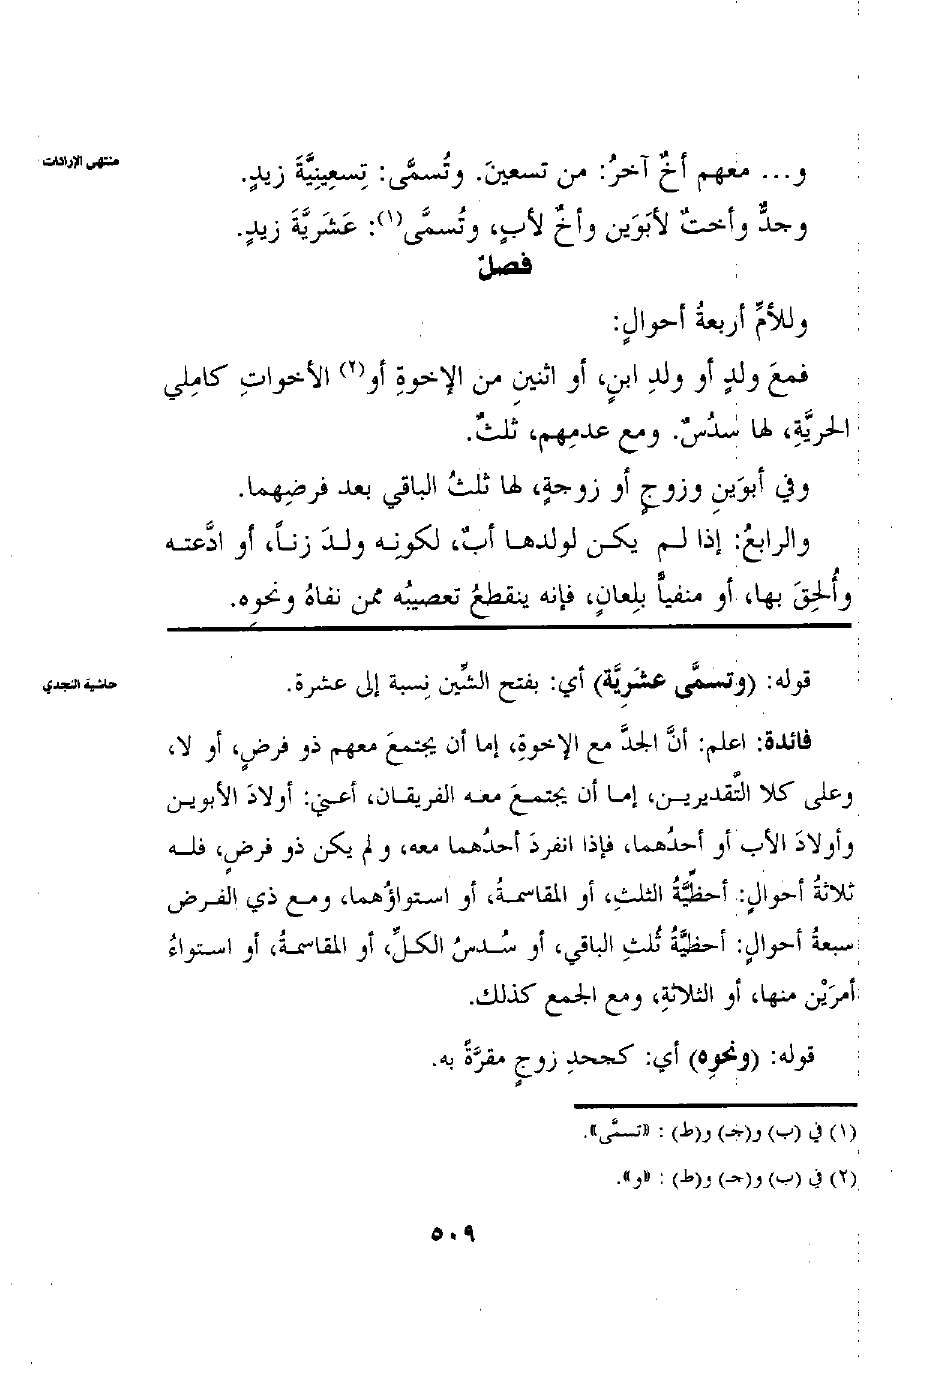 منتهى الإرادات
و... معهم أخٌ آخرُ: من تسعينَ. وتُسمَّى: تِسعِينِيَّةَ زيدٍ.
وجدٌّ وأختٌ لأبَوَين وأخٌ لأبٍ، وتُسمَّى(١): عَشَرِيَّةَ زيدٍ.
فصلٌ
وللأمِّ أربعةُ أحوالٍ:
فمعَ ولدٍ أو ولدِ ابنٍ، أو اثنينِ من الإخوةِ أو(٢) الأخواتِ كامِلي
الحريَّةِ، لها سدُسٌ. ومع عدمِهم، ثلثٌ.
وفي أبوَينِ وزوجٍ أو زوجةٍ، لها ثلثُ الباقي بعد فرضِهما.
والرابعُ: إذا لم يكن لولدها أبٌ، لكونِه ولدَ زناً، أو ادَّعته
وأُلحِقَ بها، أو منفياًّ بلِعانٍ، فإنه ينقطعُ تعصيبُه ممن نفاهُ ونحوِه.
حاشية النجدي
قوله: (وتسمَّى عشرِيَّة) أي: بفتح الشِّين نِسبة إلى عشرة.
فائدة: اعلم: أنَّ الجدَّ مع الإخوةِ، إما أن يجتمعَ معهم ذو فرضٍ، أو لا،
وعلى كلا التَّقديرين، إما أن يجتمعَ معه الفريقان، أعني: أولادَ الأبوين
وأولادَ الأب أو أحدُهما، فإذا انفردَ أحدُهما معه، ولم يكن ذو فرضٍ، فله
ثلاثةُ أحوالٍ: أحظيَّةُ الثلثِ، أو المقاسمةُ، أو استواؤُهما، ومع ذي الفرض
سبعةُ أحوالٍ: أحظيَّةُ ثُلثِ الباقي، أو سُدسُ الكلِّ، أو المقاسمةُ، أو استواءُ
أمرَيْن منها، أو الثلاثةِ، ومع الجمع كذلك.
قوله: (ونحوِه) أي: كجحدِ زوجٍ مقرَّةً به.
(١) في (ب) و(جـ) و(ط) : «تسمَّى».
(٢) في (ب) و(جـ) و(ط) : «و».
٥٠٩